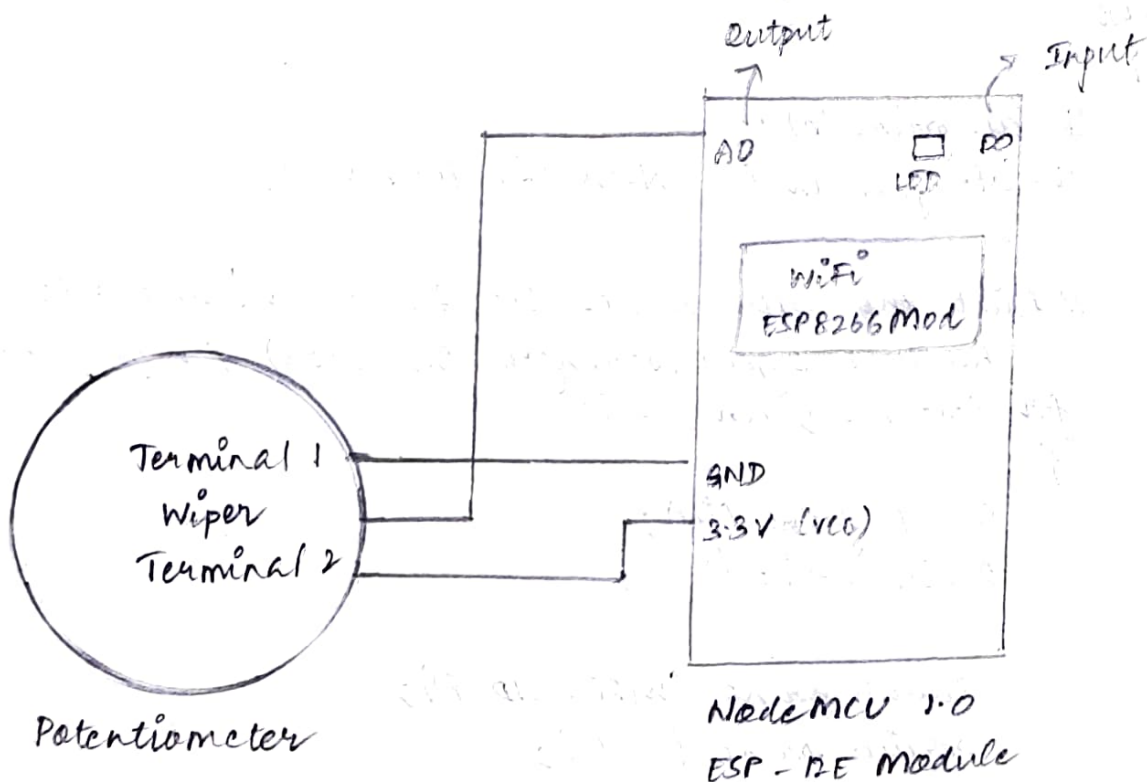 Output
Input
A0
D0
LED
WiFi
ESP8266 Mod
Terminal 1
GND
Wiper
3.3V (VCC)
Terminal 2
Potentiometer
NodeMCU 1.0
ESP-12E Module